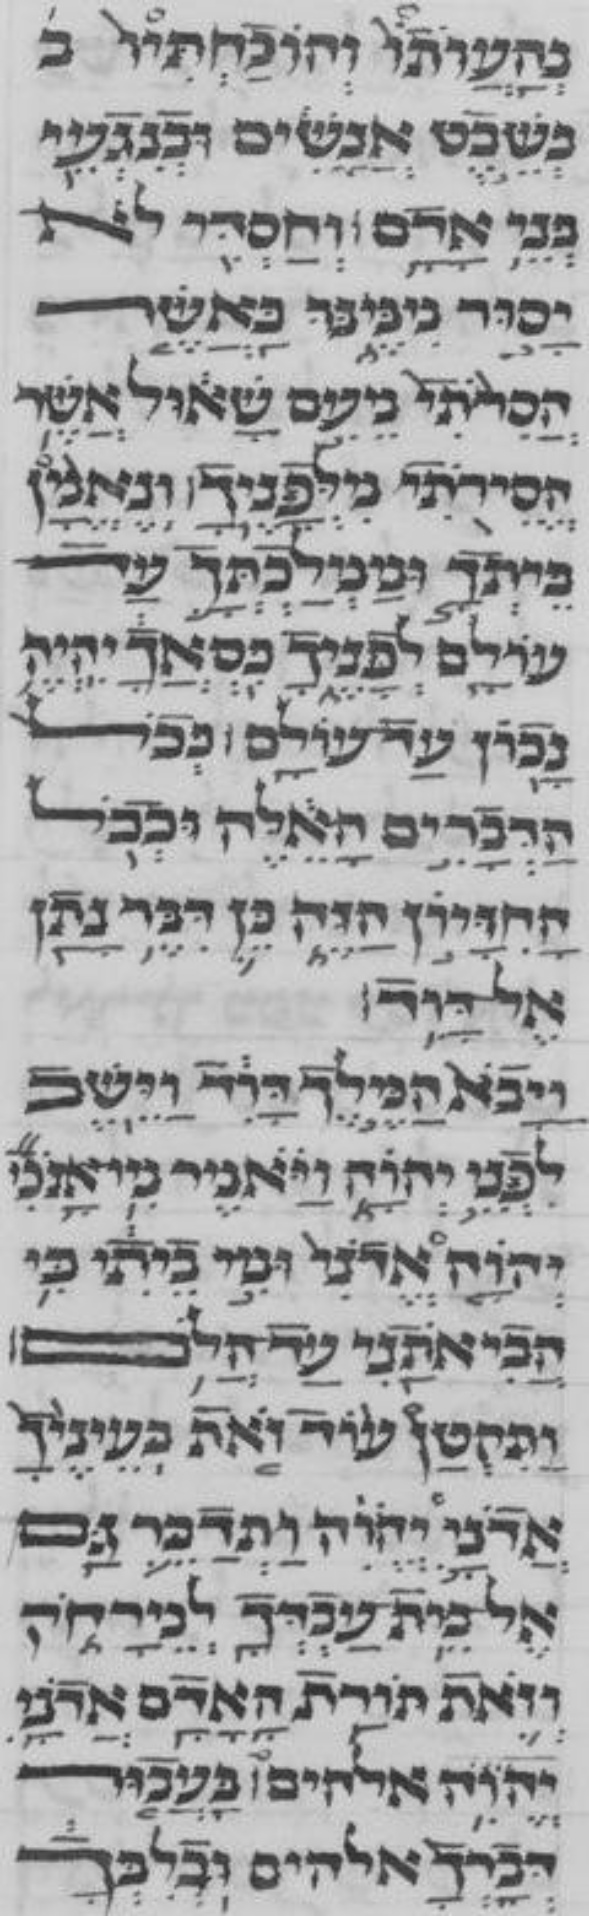 בְּהַעֲוֹתוֹ וְהוֹכַחְתִּיו ב
בְּשֵׁבֶט אֲנָשִׁים וּבְנִגְעֵי
בְּנֵי אָדָם׃ וְחַסְדִּי לֹא
יָסוּר מִמֶּנּוּ כַּאֲשֶׁר
הֲסִרֹתִי מֵעִם שָׁאוּל אֲשֶׁר
הֲסִירֹתִי מִלְּפָנֶיךָ׃ וְנֶאֱמַן
בֵּיתְךָ וּמַמְלַכְתְּךָ עַד
עוֹלָם לְפָנֶיךָ כִּסְאֲךָ יִהְיֶה
נָכוֹן עַד עוֹלָם׃ כְּכֹל
הַדְּבָרִים הָאֵלֶּה וּכְכֹל
הַחִזָּיוֹן הַזֶּה כֵּן דִּבֶּר נָתָן
אֶל דָּוִד׃
וַיָּבֹא הַמֶּלֶךְ דָּוִד וַיֵּשֶׁב
לִפְנֵי יְהוָה וַיֹּאמֶר מִי אָנֹכִי
יְהוָה אֲדֹנָי וּמִי בֵיתִי כִּי
הֲבִיאֹתַנִי עַד הֲלֹם׃
וַתִּקְטַן עוֹד זֹאת בְּעֵינֶיךָ
אֲדֹנָי יְהוִה וַתְּדַבֵּר גַּם
אֶל בֵּית עַבְדְּךָ לְמֵירָחֹק
וְזֹאת תּוֹרַת הָאָדָם אֲדֹנָי
יֱהוִה אלהים׃ בַּעֲבוּר
דְּבָרְךָ אלהים וּכְלִבְּךָ